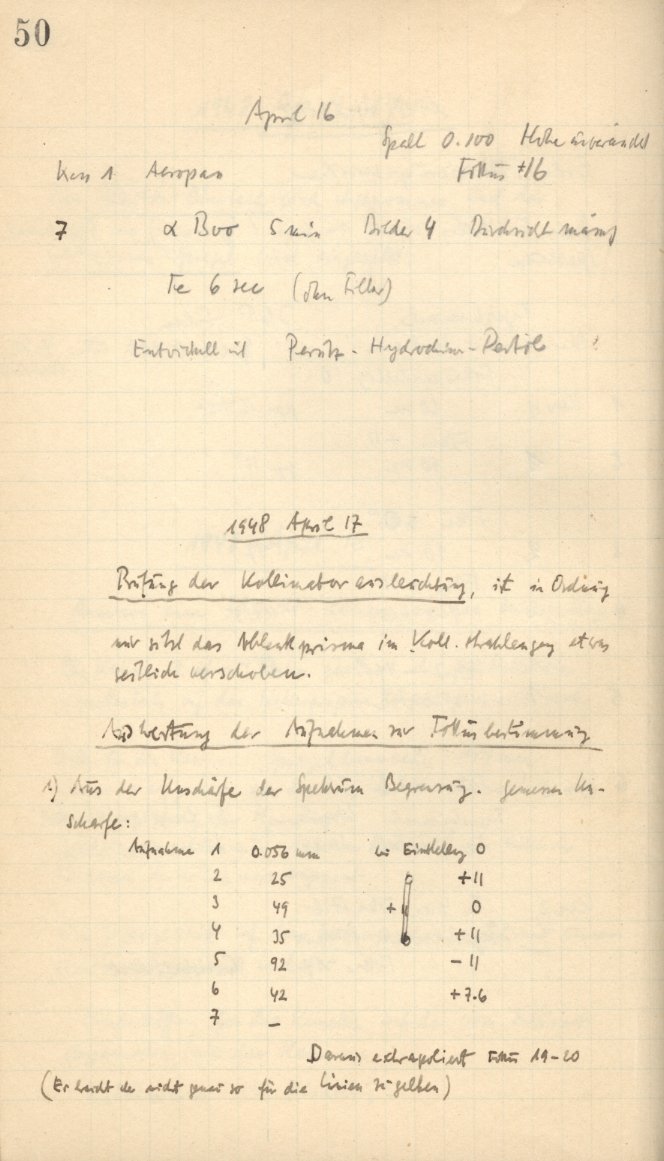 50
April 16
Spalt 0.100 Höhe unverändert
Kass 1 Aeropan Fokus +16
7 α Boo 5 min Bilder 4 Durchsicht mäss
Fe 6 sec (ohne Filter)
Entwickelt mit Perutz - Hydrochinon -
1948 April 17
Prüfung der Kollimatorausleuchtung, ist in Ordnung
nur sitzt das Ablenkprisma im Koll. strahlengang etwas
seitlich verschoben.
Auswertung der Aufnahmen zur Fokusbestimmung
1) Aus der Unschärfe der Spektrum Begrenzung. gemessen Un-
schärfe:
Aufnahme 1 0.056 mm bei Einstellung 0
2 25 +11
3 49 + 0
4 35 +11
5 92 -11
6 42 +7.6
7 -
Daraus extrapoliert Fokus 19-20
(Er braucht aber nicht genau so für die Linien zu gelten)